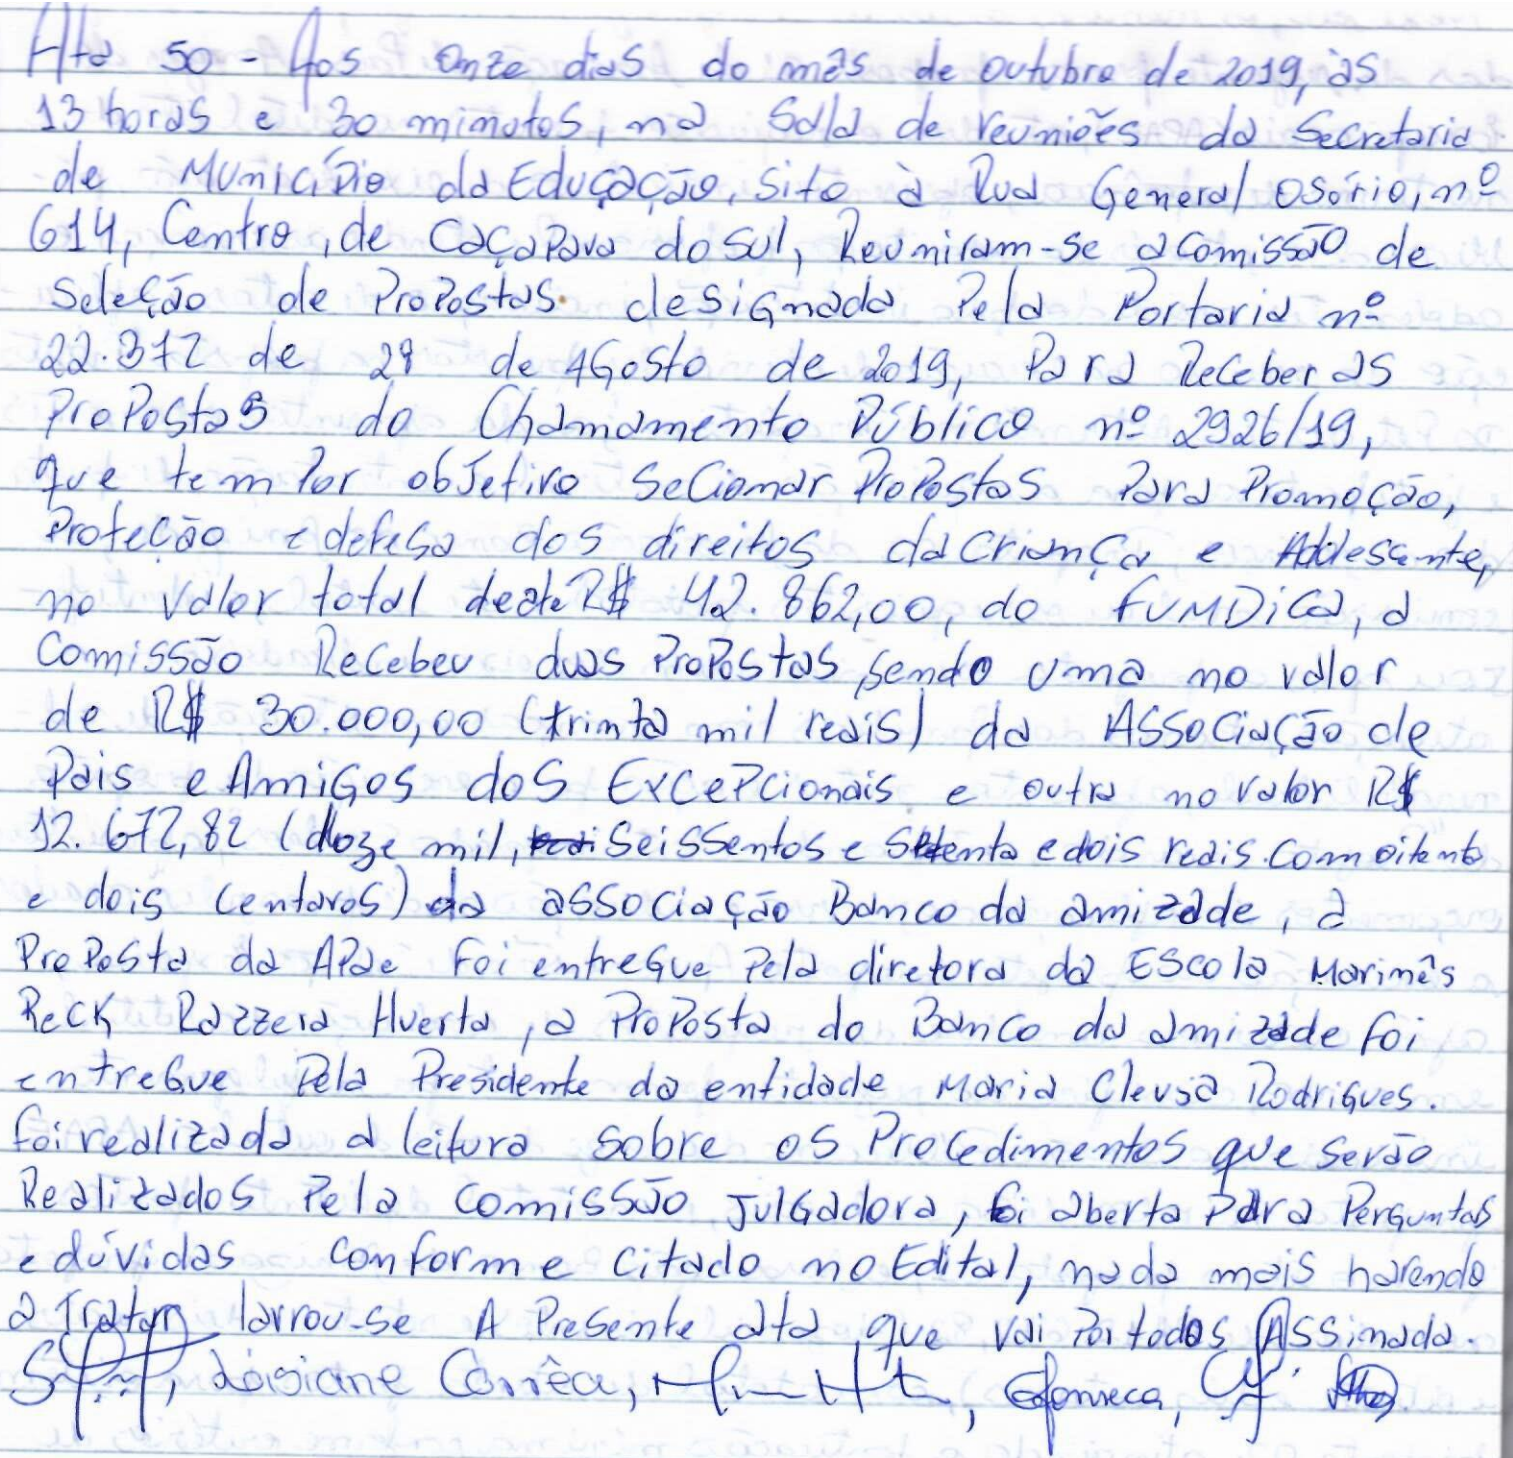 Ata 50 - Aos onze dias do mês de outubro de 2019, às
13 horas e 30 minutos, na Sala de reuniões da Secretaria
de Município da Educação, sito à Rua General Osório, nº
614, Centro, de Caçapava do Sul, Reuniram-se a Comissão de
Seleção de Propostas designada Pela Portaria nº
22.372 de 29 de AGosto de 2019, Para Receber as
Propostas do Chamamento Público nº 2926/19,
que tem Por objetivo Secionar Propostas Para Promoção,
Proteção e defesa dos direitos da criança e Adolescente,
no valor total deste R$ 42.862,00, do FUMDiCa, a
Comissão Recebeu duas Propostas, sendo uma no valor
de R$ 30.000,00 (trinta mil reais) da Associação de
Pais e Amigos dos Excepcionais e outra no valor R$
12.672,82 (doze mil, Seissentos e setenta e dois reais com oitenta
e dois centavos) da associação Banco da amizade, a
Proposta da APae foi entregue Pela diretora da Escola Marinês
Reck Razzera Huerta, a Proposta do Banco da amizade foi
entregue Pela Presidente da entidade Maria Cleusa Rodrigues.
foi realizada a leitura sobre os Procedimentos que serão
Realizados Pela comissão Julgadora, foi aberta Para Perguntas
e dúvidas conforme citado no Edital, nada mais havendo
a Tratar lavrou-se A Presente ata que vai Por todos Assinada.
Loisiane Corrêa, Gfonseca,